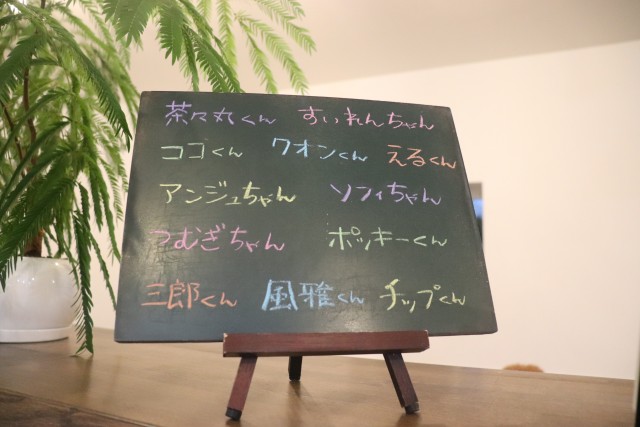 茶々丸くん すいれんちゃん
ココくん クオンくん えるくん
アンジュちゃん ソフィちゃん
つむぎちゃん ポッキーくん
三郎くん 風雅くん チップくん